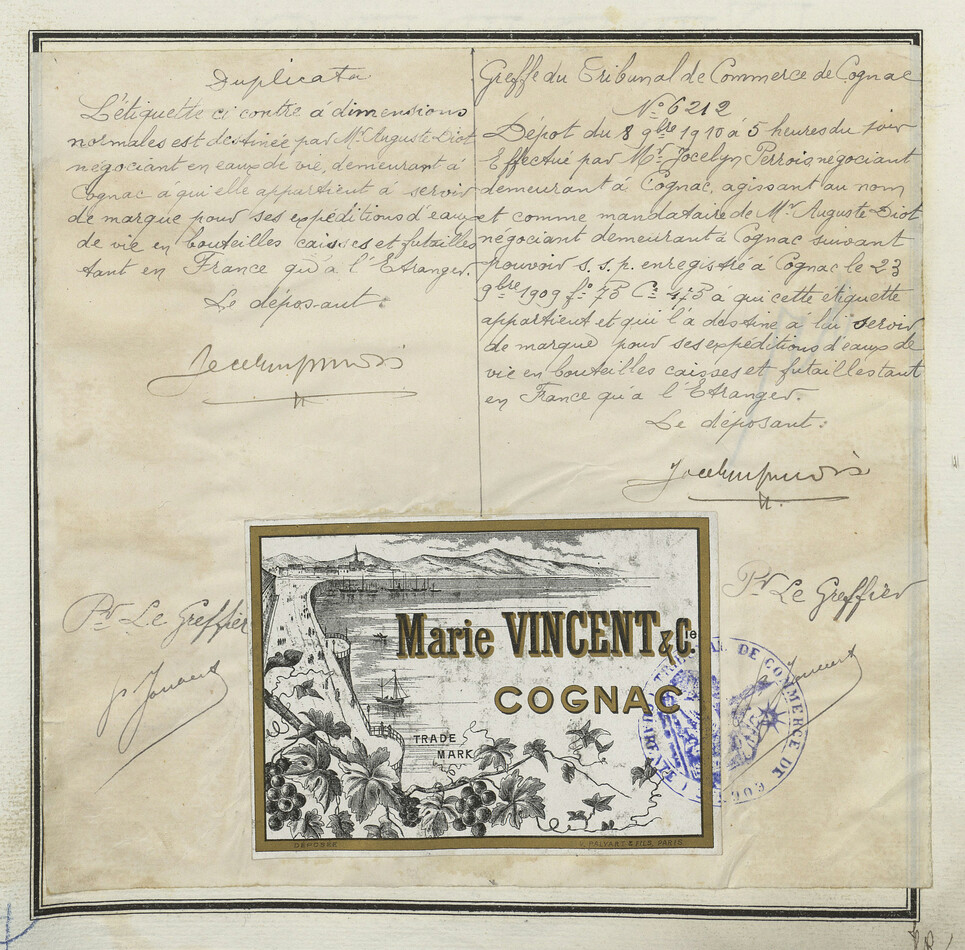 Duplicata
L'étiquette ci contre à dimensions
normales est destinée par Mr. Auguste Diot
négociant en eaux de vie, demeurant à
Cognac à qui elle appartient à servir
de marque pour ses expéditions d'eaux
de vie en bouteilles caisses et futailles
tant en France qu'à l'Etranger.
Le déposant :
Greffe du Tribunal de Commerce de Cognac
No 6212
Dépot du 8 9bre 1910 à 5 heures du soir
Effectué par Mr. Jocelyn Perrois, négociant
demeurant à Cognac, agissant au nom
et comme mandataire de Mr. Auguste Diot
négociant demeurant à Cognac suivant
pouvoir s. s. p. enregistré à Cognac le 23
9bre 1909 fo 73 Ce 473 à qui cette étiquette
appartient et qui l'a destine à lui servir
de marque pour ses expéditions d'eaux de
vie en bouteilles caisses et futailles tant
en France qu'à l'Etranger.
Le déposant :
Pr Le Greffier
Pr Le Greffier
Marie VINCENT & Cie
COGNAC
TRADE
MARK
DÉPOSÉE
PALYART & FILS, PARIS
TRIBUNAL DE COMMERCE DE COGNAC